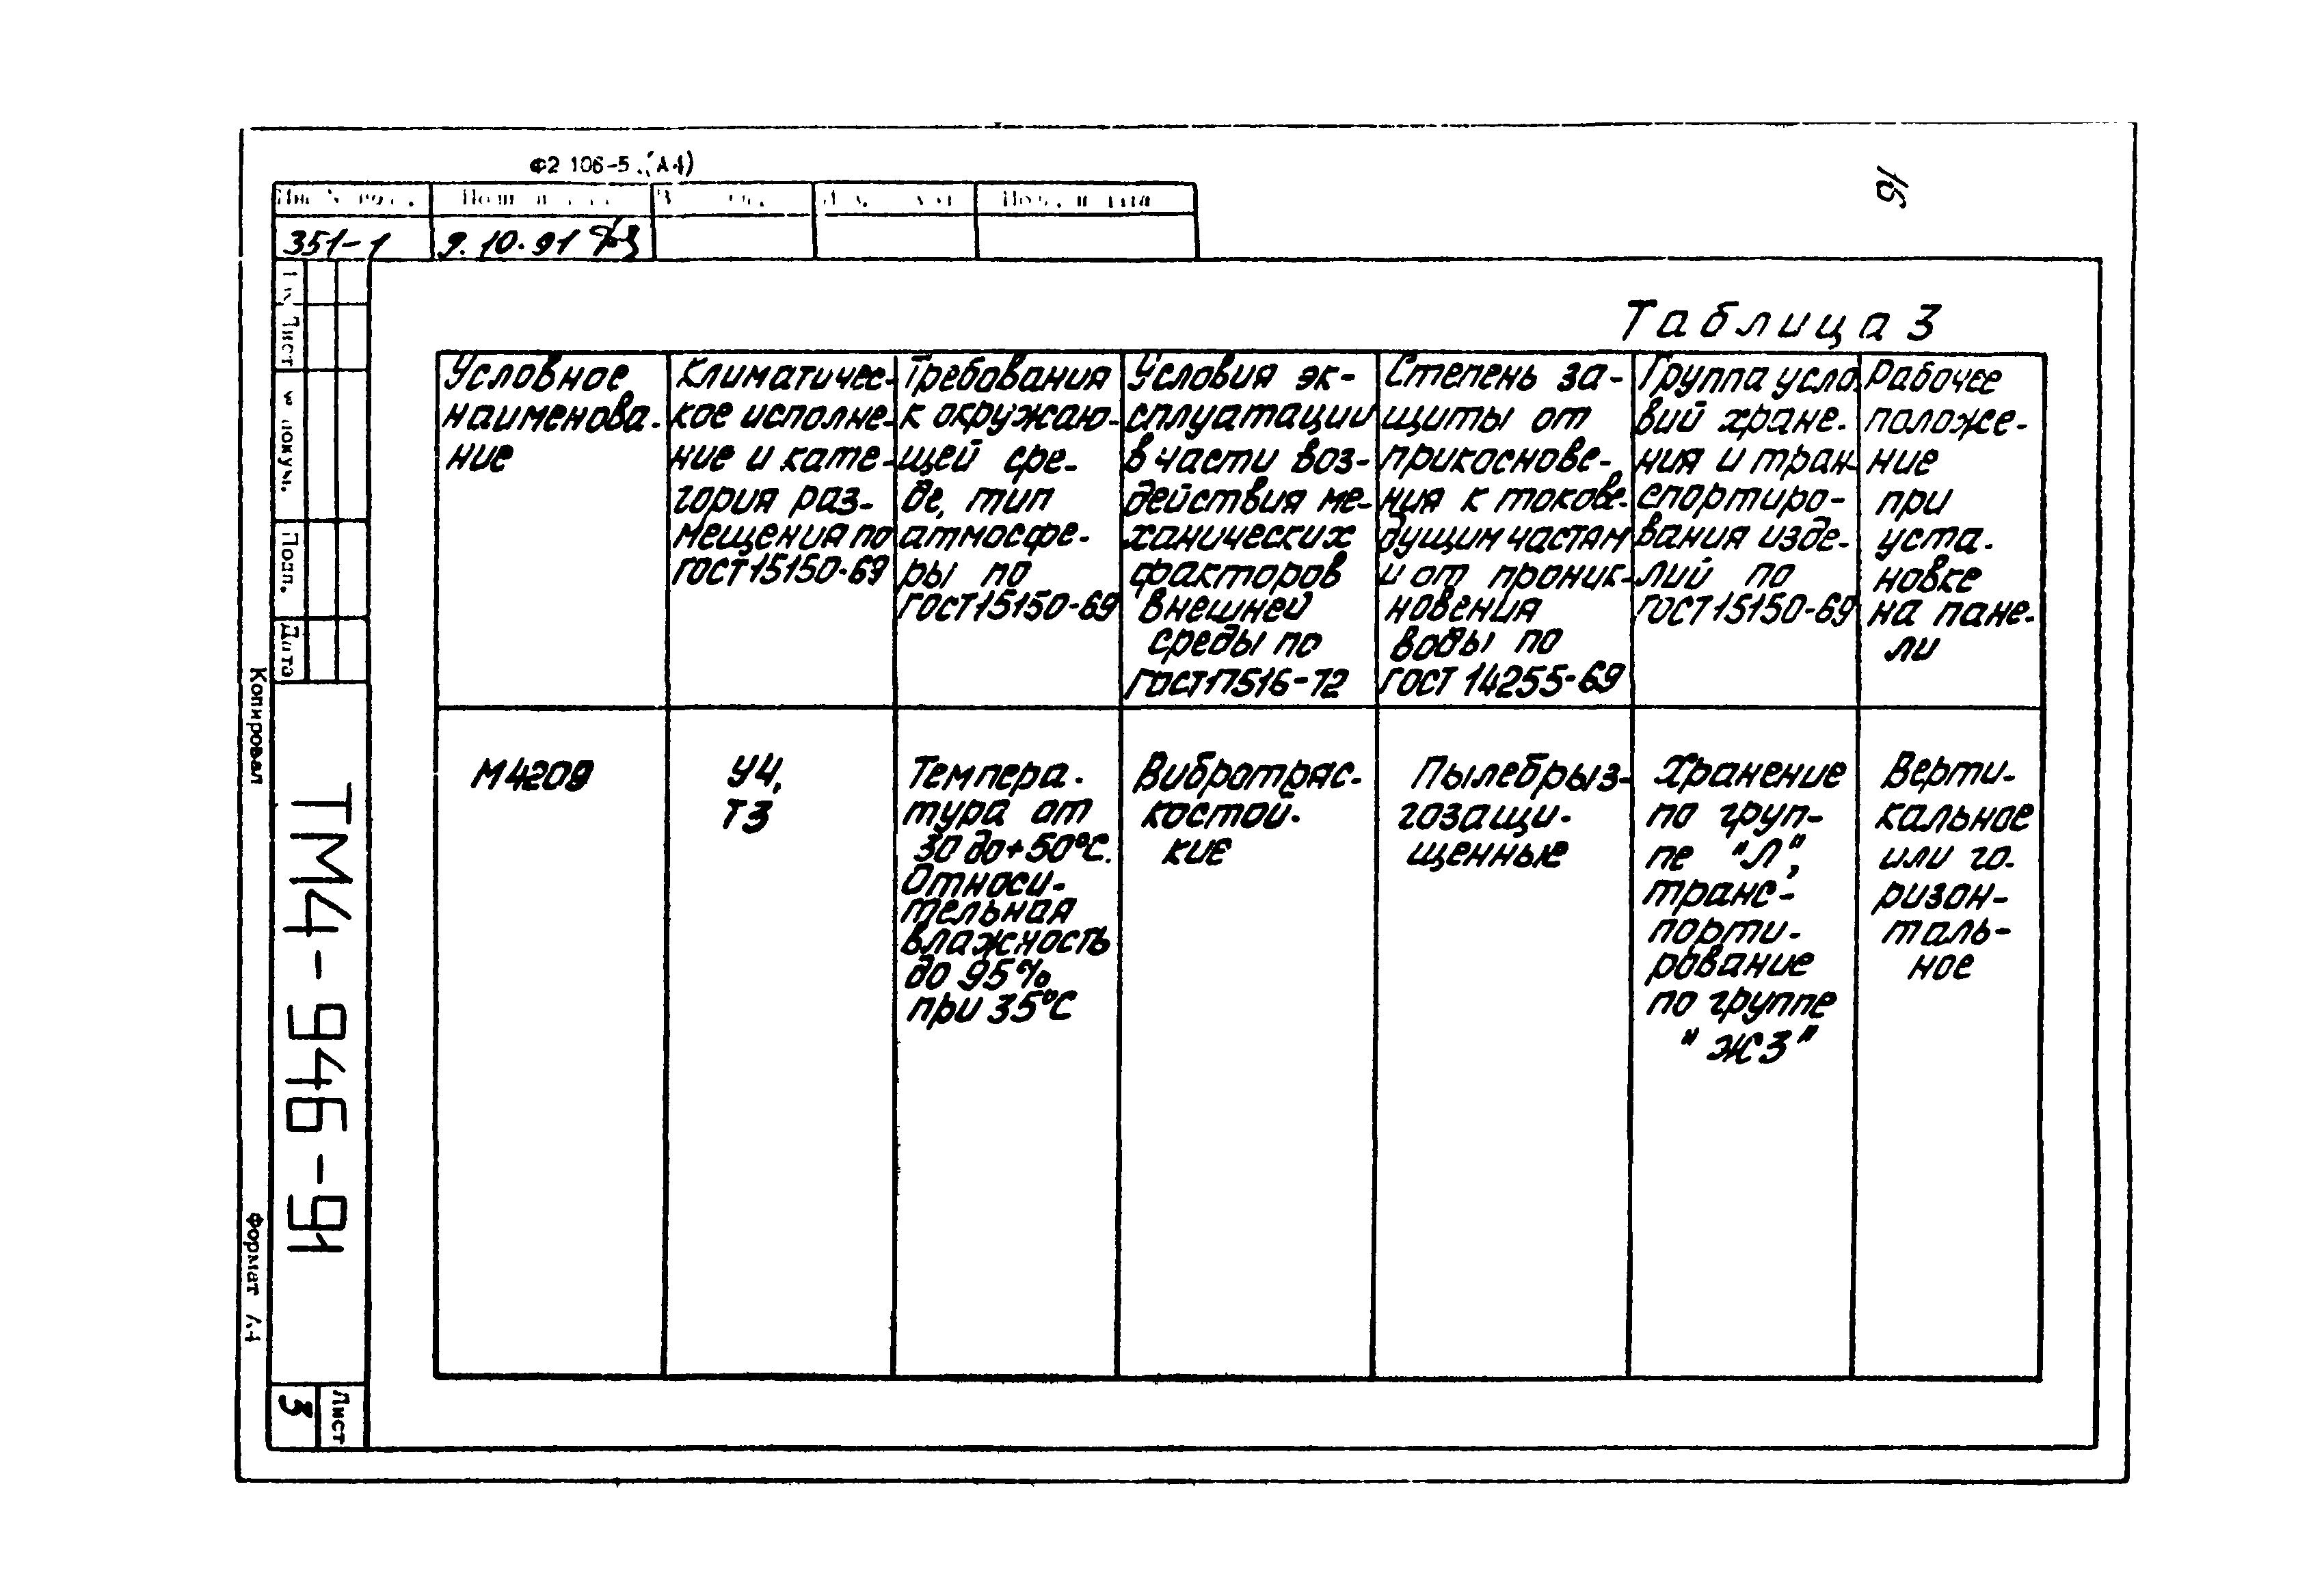 Ф2 106-5 (А4)
16
351-1
9.10.91
Таблица 3
Условное
наименова-
ние
Климатичес-
кое исполне-
ние и кате-
гория раз-
мещения по
ГОСТ 15150-69
Требования
к окружаю-
щей сре-
де, тип
атмосфе-
ры по
ГОСТ 15150-69
Условия эк-
сплуатации
в части воз-
действия ме-
ханических
факторов
внешней
среды по
ГОСТ 17516-72
Степень за-
щиты от
прикоснове-
ния к токове-
дущим частям
и от проник-
новения
воды по
ГОСТ 14255-69
Группа усло
вий хране-
ния и тран-
спортиро-
вания изде-
лий по
ГОСТ 15150-69
Рабочее
положе-
ние
при
уста-
новке
на пане-
ли
М4209
У4,
Т3
Темпера-
тура от
30 до +50°С.
Относи-
тельная
влажность
до 95%
при 35°С
Вибротряс-
костой-
кие
Пылебрыз-
гозащи-
щенные
Хранение
по груп-
пе "Л",
транс-
порти-
рование
по группе
"Ж3"
Верти-
кальное
или го-
ризон-
таль-
ное
Лист
докум.
Подп.
Дата
ТМ4-946-91
Лист
3
Копировал
Формат А4